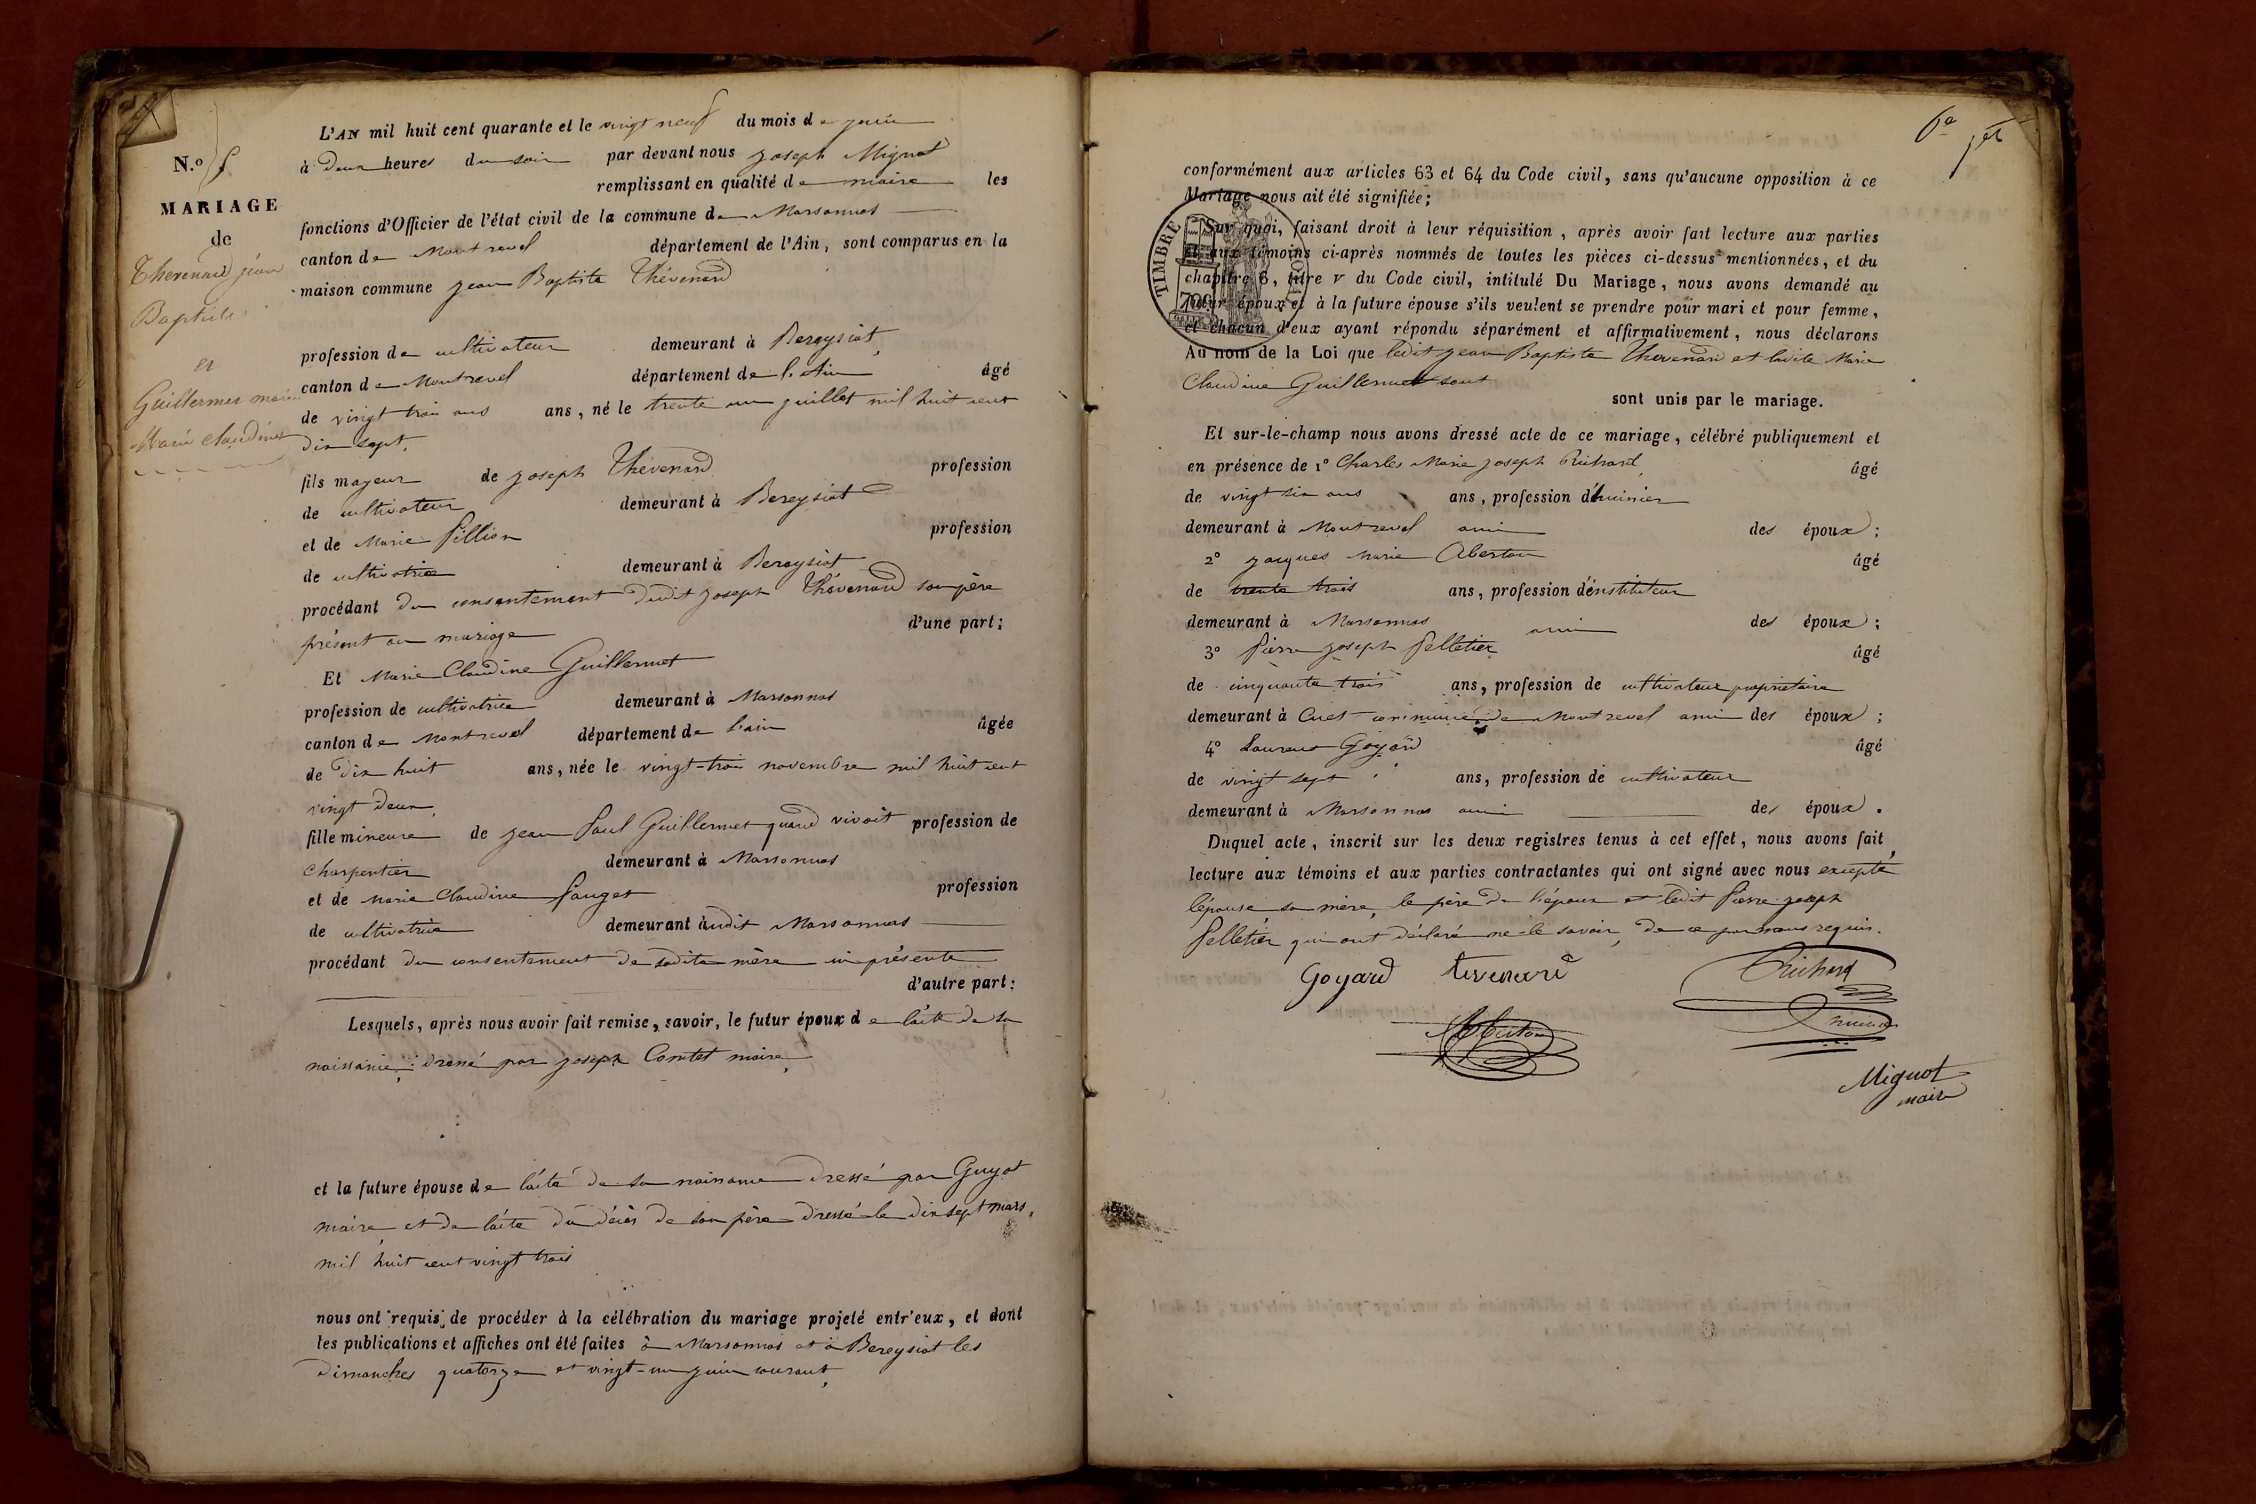 N.º 5
MARIAGE
de
Thevenard jean
Baptiste
et
Guillermet marie
Marie claudine
L'AN mil huit cent quarante et le vingt neuf du mois de juin
à Deux heures du soir par devant nous joseph Mignot
remplissant en qualité de maire les
fonctions d'Officier de l'état civil de la commune de Marsonnas
canton de Montrevel département de l'Ain, sont comparus en la
maison commune jean Baptiste Thévenard
profession de cultivateur demeurant à Bereysiat,
canton de Montrevel département de l'Ain âgé
de vingt trois ans ans, né le trente un juillet mil huit cent
dix sept.
fils majeur de joseph Thévenard profession
de cultivateur demeurant à Bereysiat
et de Marie Pillion profession
de cultivatrice demeurant à Bereysiat
procédant du consentement dudit joseph Thévenard son père
présent au mariage d'une part;
Et Marie Claudine Guillermet
profession de cultivatrice demeurant à Marsonnas
canton de Montrevel département de l'ain âgée
de dix huit ans, née le vingt-trois novembre mil huit cent
vingt deux,
fille mineure de jean Paul Guillermet quand vivait profession de
charpentier demeurant à Marsonnas
et de Marie Claudine Pauget profession
de cultivatrice demeurant àudit Marsonnas
procédant du consentement de sadite mère ici présente
d'autre part:
Lesquels, après nous avoir fait remise, savoir, le futur époux de l'acte de sa
naissance, dressé par joseph Comtet maire,
et la future épouse de l'acte de sa naissance dressé par Guyot
maire, et de l'acte du décès de son père dressé le dix sept mars,
mil huit cent vingt trois
nous ont requis de procéder à la célébration du mariage projeté entr'eux, et dont
les publications et affiches ont été faites à Marsonnas et à Bereysiat les
dimanches quatorze et vingt-un juin courant,
6e
conformément aux articles 63 et 64 du Code civil, sans qu'aucune opposition à ce
Mariage nous ait été signifiée;
TIMBRE ROYAL
Sur quoi, faisant droit à leur réquisition, après avoir fait lecture aux parties
et aux témoins ci-après nommés de toutes les pièces ci-dessus mentionnées, et du
chapitre 6, titre V du Code civil, intitulé Du Mariage, nous avons demandé au
futur époux et à la future épouse s'ils veulent se prendre pour mari et pour femme,
et chacun d'eux ayant répondu séparément et affirmativement, nous déclarons
Au nom de la Loi que ledit jean Baptiste Thevenard et ladite Marie
Claudine Guillermet sont
sont unis par le mariage.
Et sur-le-champ nous avons dressé acte de ce mariage, célébré publiquement et
en présence de 1º Charles Marie joseph Richard, âgé
de vingt six ans ans, profession d'huissier
demeurant à Montrevel ami des époux;
2º jacques Marie Aberton âgé
de trente trois ans, profession d'énstituteur
demeurant à Marsonnas ami des époux;
3º Pierre joseph Pelletier âgé
de cinquante trois ans, profession de cultivateur propriétaire
demeurant à Cuet commune de Montrevel ami des époux;
4º Laurent Goyard âgé
de vingt sept ans, profession de cultivateur
demeurant à Marsonnas ami des époux.
Duquel acte, inscrit sur les deux registres tenus à cet effet, nous avons fait
lecture aux témoins et aux parties contractantes qui ont signé avec nous excepté
l'épouse, sa mère, le père de l'époux et ledit Pierre joseph
Pelletier qui ont déclaré ne le savoir, de ce par nous requis.
Goyard tevenard Richard
Aberton huissier
Mignot
maire